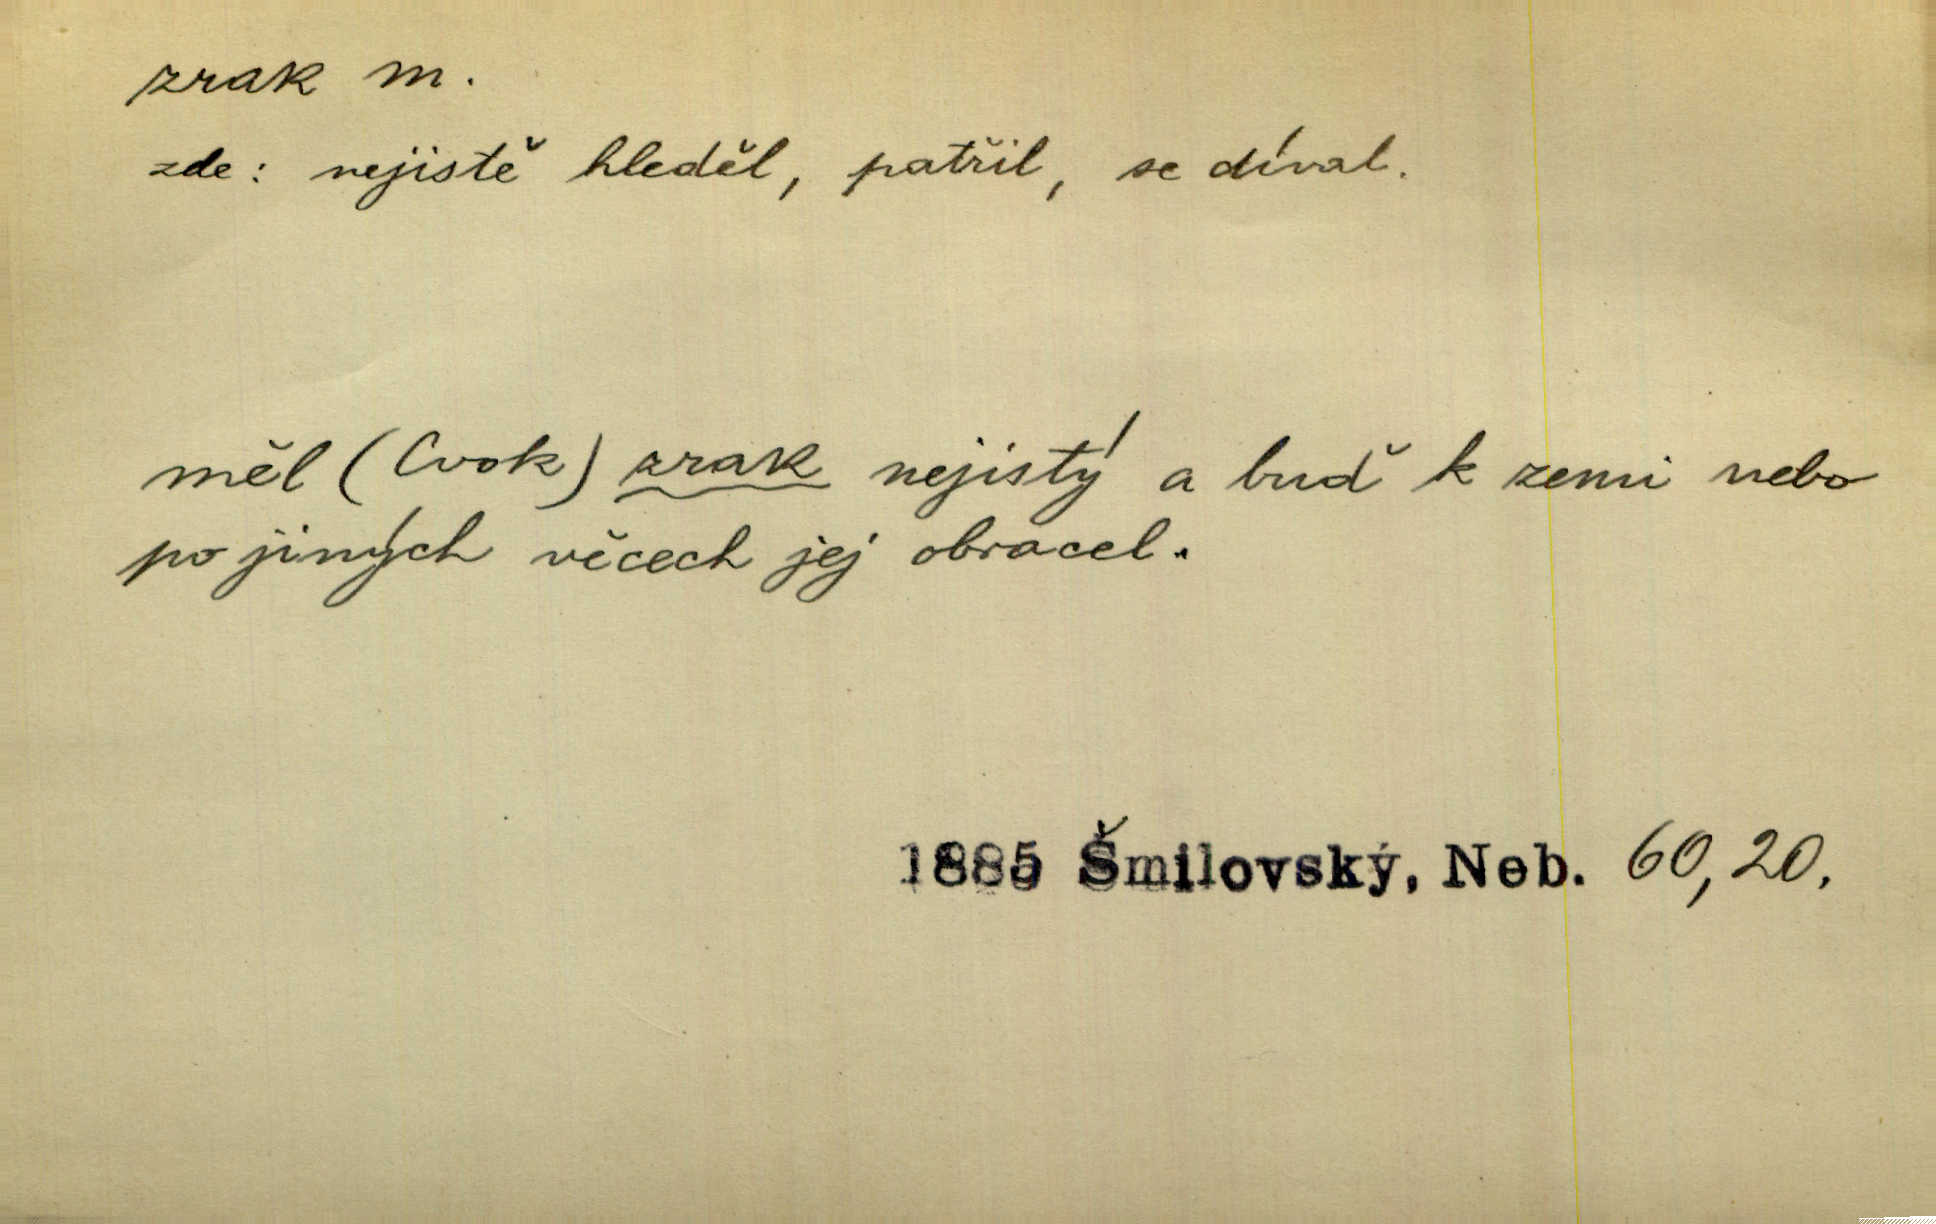 zrak m.
zde: nejistě hleděl, patřil, se díval.
měl (Cvok) zrak nejistý a buď k zemi nebo
po jiných věcech jej obracel.
1885 Šmilovský, Neb. 60,20.